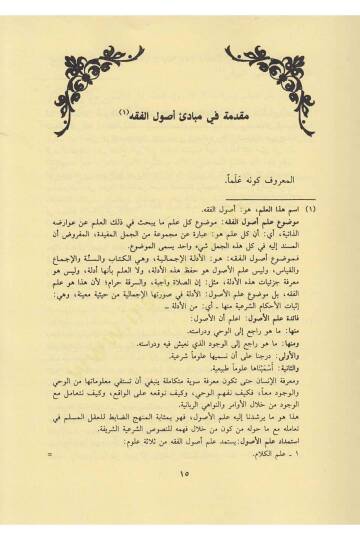 مقدمة في مبادئ أصول الفقه(١)
المعروف كونه عَلَماً.
(١) اسم هذا العلم، هو: أصول الفقه.
موضوع علم أصول الفقه: موضوع كل علم ما يبحث في ذلك العلم عن عوارضه
الذاتية، أي: أن كل علم هو: عبارة عن مجموعة من الجمل المفيدة، المفروض أن
المسند إليه في كل هذه الجمل شيء واحد يسمى الموضوع.
فموضوع أصول الفقه: هو: الأدلة الإجمالية، وهي الكتاب والسنَّة والإجماع
والقياس، وليس علم الأصول هو حفظ هذه الأدلة، ولا العلم بأنها أدلة، وليس هو
معرفة جزئيات هذه الأدلة، مثل: إن الصلاة واجبة، والسرقة حرام؛ لأن هذا هو علم
الفقه، بل موضوع علم الأصول: الأدلة في صورتها الإجمالية من حيثية معينة، وهي:
إثبات الأحكام الشرعية منها ـ أي: من الأدلة ـ
فائدة علم الأصول: اعلم أن الأصول:
منها: ما هو راجع إلى الوحي ودراسته.
ومنها: ما هو راجع إلى الوجود الذي نعيش فيه ودراسته.
والأولى: درجنا على أن نسميها علوماً شرعية.
والثانية: أسميناها علوماً طبيعية.
ومعرفة الإنسان حتى تكون معرفة سوية متكاملة ينبغي أن تستقي معلوماتها من الوحي
والوجود معاً، فكيف نفهم الوحي، وكيف نوقعه على الواقع، وكيف نتعامل مع
الوجود من خلال الأوامر والنواهي الربانية.
هذا هو ما يرشدنا إليه علم الأصول، فهو بمثابة المنهج الضابط للعقل المسلم في
تعامله مع ما حوله من كون من خلال فهمه للنصوص الشرعية الشريفة.
استمداد علم الأصول: يستمد علم أصول الفقه من ثلاثة علوم:
١ ـ علم الكلام. =
١٥